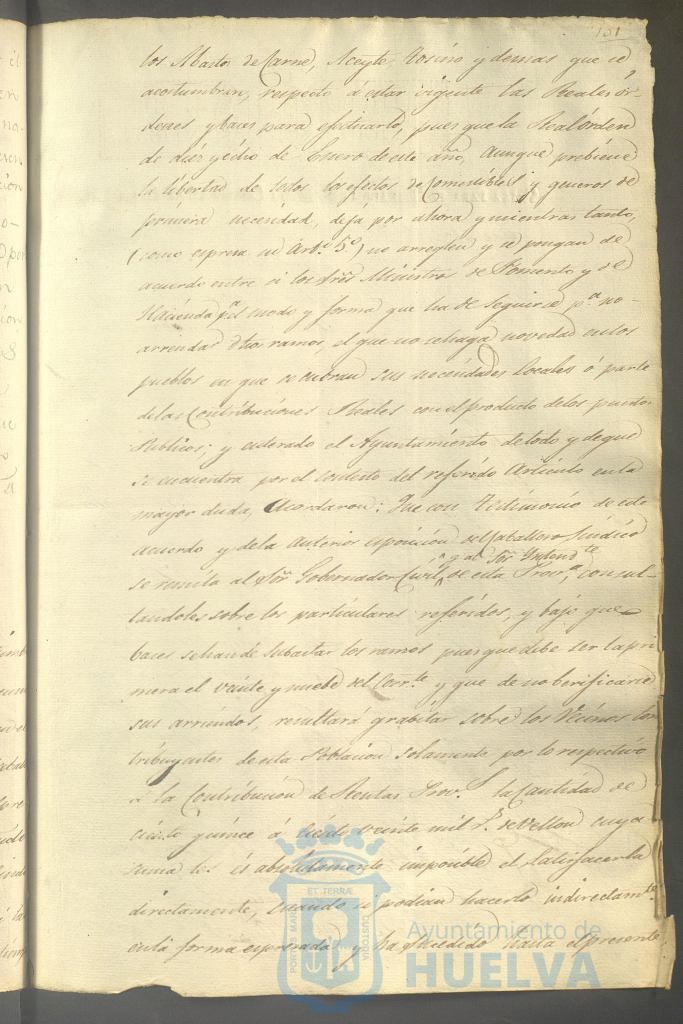 151
los Abastos de Carne, Aceyte, Tosino y demas que se
acostumbran, respecto á estar vigente las Reales ór-
denes y bases para efectuarlo, pues que la Real órden
de diez y ocho de Enero de este año, Aunque prebiene
la libertad de todos los efectos de Comestibles y generos de
primera necesidad, deja por ahora y mientras tanto,
(como espresa su Artº 5º) no arreglen y se pongan de
acuerdo entre si los Sres Ministros de Fomento y de
Hacienda, pª el modo y forma que ha de seguirse pª no
arrendar dhos ramos, el que no se haga novedad en los
pueblos en que se cubran sus necesidades locales ó parte
de las Contribuciones Reales con el producto de los puestos
Publicos; y enterado el Ayuntamiento de todo y de que
se encuentra por el contesto del referido Articulo en la
mayor duda, Acordaron: Que con Testimonio de este
acuerdo y de la anterior esposicion del Caballero Sindico
se remita al Sor Gobernador Civil, y al Sor Yntendte de esta Prova, consul-
tandoles sobre los particulares referidos, y bajo que
baces se han de subastar los ramos pues que debe ser la pri
mera el veinte y nuebe del Corrte, y que de no berificarse
sus arriendos, resultará grabitar sobre los Vecinos Con
tribuyentes de esta Poblacion solamente por lo respectivo
á la Contribución de Rentas Provs la Cantidad de
ciento quince á ciento veinte mil rs de Vellon cuya
suma les es absolutamente imposible el satisfacerla
directamente, cuando se podian hacerlo indirectamte
en la forma espresada y ha sucedido hasta el presente
PORTUS MARIS ET TERRAE CUSTODIA
Ayuntamiento de
HUELVA